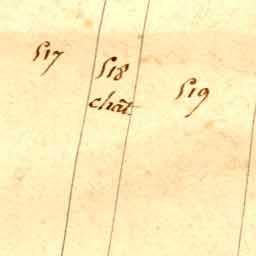 517
518
chât
519